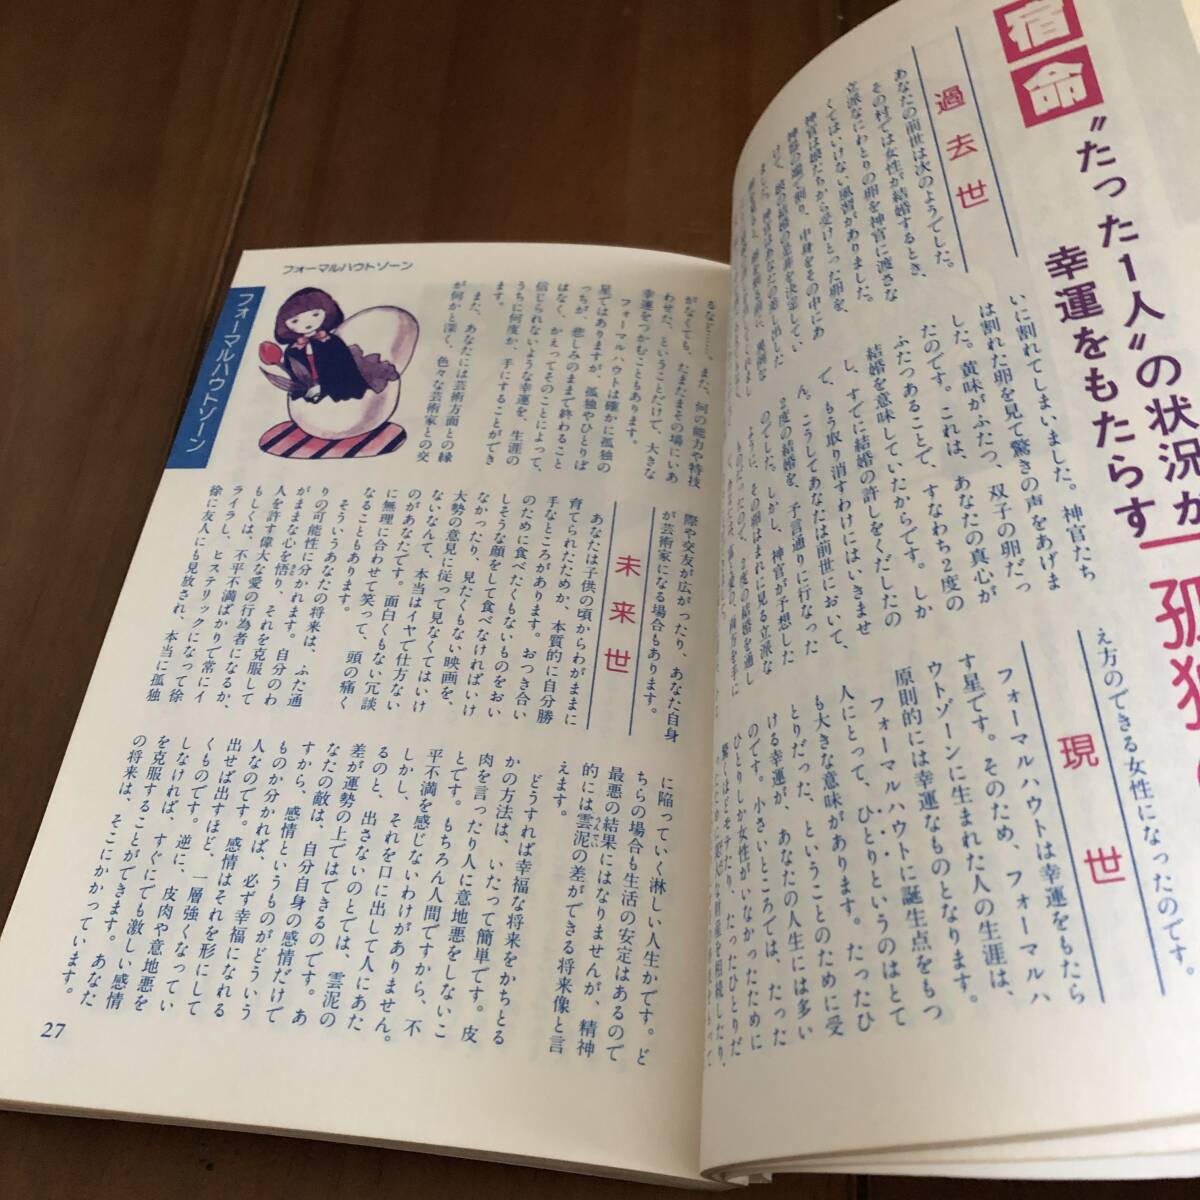 宿命
“たった1人”の状況が
幸運をもたらす
過去世
あなたの前世は次のようでした。
その村では女性が結婚するとき、
立派なにわとりの卵を神官に渡さな
くてはいけない風習がありました。
神官は娘たちから受けとった卵を、
神殿の場で割り、中身をその中にあ
いに割れてしまいました。神官たち
は割れた卵を見て驚きの声をあげま
した。黄味がふたつ、双子の卵だっ
たのです。これは、あなたの真心が
ふたつあることで、すなわち2度の
結婚を意味していたからです。しか
し、すでに結婚の許しをくだしたの
で、もう取り消すわけにはいきませ
ん。こうしてあなたは前世において、
2度の結婚を、予言通りに行なった
のでした。しかし、神官が予想した
ように、その卵はまれに見る立派な
え方のできる女性になったのです。
現世
フォーマルハウトは幸運をもたら
す星です。そのため、フォーマルハ
ウトゾーンに生まれた人の生涯は、
原則的には幸運なものとなります。
フォーマルハウトに誕生点をもつ
人にとって、ひとりというのはとて
も大きな意味があります。たったひ
とりだった、ということのために受
ける幸運が、あなたの人生には多い
のです。小さいところでは、たった
ひとりしか女性がいなかったために
フォーマルハウトゾーン
フォーマルハウトゾーン
るなど……。また、何の能力や特技
がなくても、たまたまその場にいあ
わせた、ということだけで、大きな
幸運をつかむこともあります。
フォーマルハウトは確かに孤独の
星ではありますが、孤独やひとりぼ
っちが、悲しみのままで終わること
はなく、かえってそのことによって、
信じられないような幸運を、生涯の
うちに何度か、手にすることができ
ます。
また、あなたには芸術方面との縁
が何かと深く、色々な芸術家との交
際や交友が広がったり、あなた自身
が芸術家になる場合もあります。
未来世
あなたは子供の頃からわがままに
育てられたためか、本質的に自分勝
手なところがあります。おつき合い
のために食べたくもないものをおい
しそうな顔をして食べなければいけ
なかったり、見たくもない映画を、
大勢の意見に従って見なくてはいけ
ないなんて、本当はイヤで仕方ない
のがあなたです。面白くもない冗談
に無理に合わせて笑って、頭の痛く
なることもあります。
そういうあなたの将来は、ふた通
りの可能性に分かれます。自分のわ
がままな心を悟り、それを克服して
人を許す偉大な愛の行為者になるか、
もしくは、不平不満ばかりで常にイ
ライラし、ヒステリックになって徐
徐に友人にも見放され、本当に孤独
に陥っていく淋しい人生かです。ど
ちらの場合も生活の安定はあるので
最悪の結果にはなりませんが、精神
的には雲泥の差ができる将来像と言
えます。
どうすれば幸福な将来をかちとる
かの方法は、いたって簡単です。皮
肉を言ったり人に意地悪をしないこ
とです。もちろん人間ですから、不
平不満を感じないわけがありません。
しかし、それを口に出して人にあた
るのと、出さないのとでは、雲泥の
差が運勢の上ではできるのです。あ
なたの敵は、自分自身の感情だけで
すから、感情というものがどういう
ものか分かれば、必ず幸福になれる
人なのです。感情はそれを形にして
出せば出すほど、一層強くなってい
くものです。逆に、皮肉や意地悪を
しなければ、すぐにでも激しい感情
を克服することができます。あなた
の将来は、そこにかかっています。
27